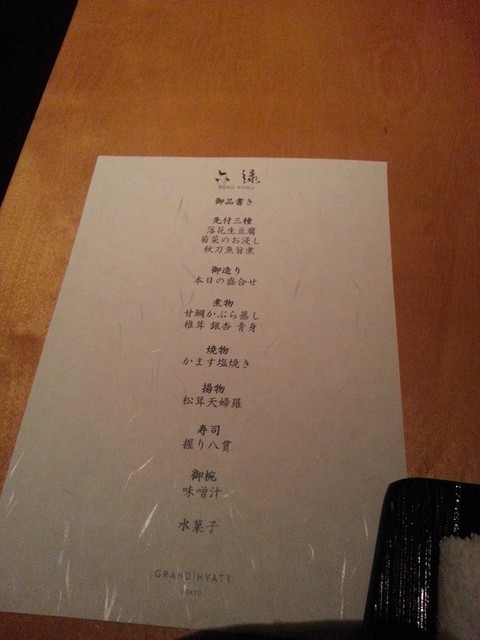 六緑
ROKU ROKU
御品書き
先付三種
落花生豆腐
菊菜のお浸し
秋刀魚旨煮
御造り
本日の盛合せ
煮物
甘鯛かぶら蒸し
椎茸 銀杏 青身
焼物
かます塩焼き
揚物
松茸天婦羅
寿司
握り八貫
御椀
味噌汁
水菓子
GRAND HYATT
TOKYO